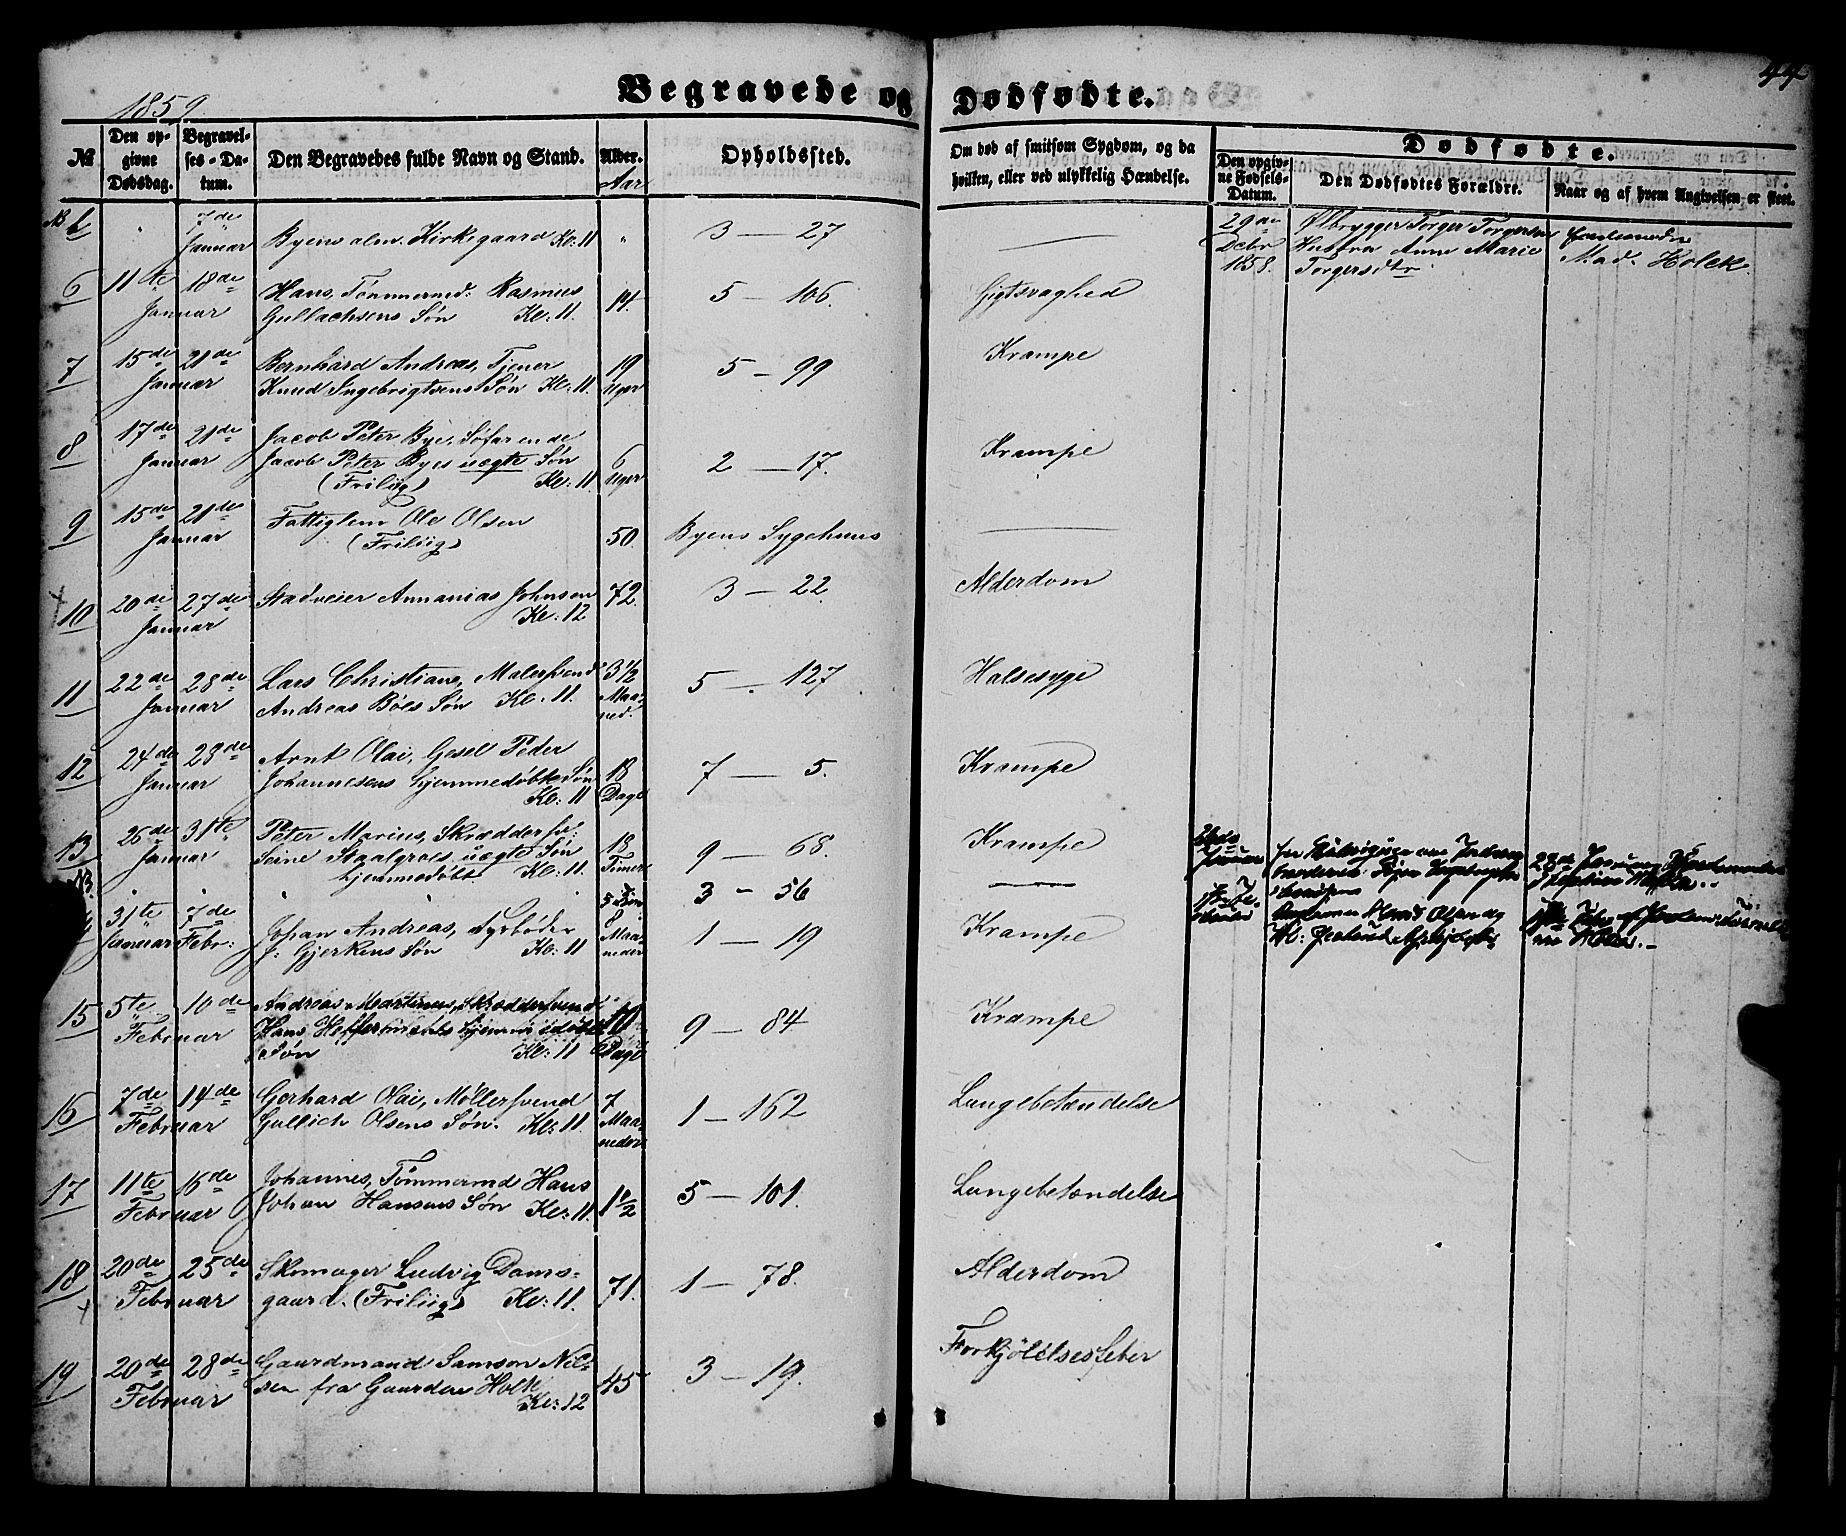 1859
Begravede og Dødfødte.
44
№
Den opgivne Dødsdag.
Begravelses-Datum.
Den Begravedes fulde Navn og Stand.
Alder. Aar
Opholdssted.
Om død af smitsom Sygdom, og da hvilken, eller ved ulykkelig Hændelse.
Dødfødte.
Den opgivne Fødsels-Datum.
Den Dødfødtes Forældre.
Naar og af hvem Angivelsen er skeet.
7de Januar
Byens alm. Kirkegaard Kl: 11
3 — 27
29de Decbr 1858
Ølbrygger Torger Torgersen
Hustru Anne Marie
Torgersdtr
Mad. Holck
6 11te 18de Januar
Hans, Tømmermd. Rasmus
Gullachsens Søn Kl: 11.
14.
5 — 106.
Gigtsvaghed
7 15de 21de Januar
Bernhard Andreas, Tjener
Knud Ingebrigtsens Søn Kl: 11.
19 Uger
5 — 99
Krampe
8 17de 21de Januar
Jacob Peter Bye, Søfarende
Jacob Peter Byes uægte Søn
(Friliig) Kl: 11
6 Uger
2 — 17.
Krampe
9 15de 21de Januar
Fattiglem Ole Olsen
(Friliig)
50
Byens Sygehuus
10 20de 27de Januar
Stadveier Annanias Johnsen
Kl: 12
72.
3 — 22.
Alderdom
11 22de 28de Januar
Lars Christians, Malersvend
Andreas Bøes Søn Kl: 11.
3 1/2 Maaned.
5 — 127
Halsesyge
12 24de 28de Januar
Arnt Olai, Gesel Peder
Johannesens hjemmedøbte Søn
Kl: 11
18 Dage
7 — 5.
Krampe
13 26de 31te Januar
Peter Marius, Skrædderpi.
Seine Staalgroes uægte Søn
hjemmedøbt. Kl: 11
18 Timer
9 — 68.
Krampe
3 — 56
31te Januar 7de Febr:
Johan Andreas, Fyrbøder
J. Gjerkens Søn Kl: 11
8 Maaneder
1 — 19
Krampe
15 5te 10de Februar
Andreas Martinus, Skræddersvend
Hans Heffermehls hjemmedøbte
Søn Kl: 11
10 Dage
9 — 84
Krampe
16 7de 14de Februar
Gerhard Olai, Møllersvend
Gullich Olsens Søn. Kl: 11.
7 Maaneder
1 — 162
Lungebetændelse
17 11te 16de Februar
Johannes, Tømmermd Hans
Johan Hansens Søn Kl: 11.
1 1/2
5 — 101.
Lungebetændelse
18 20de 25de Februar
Skomager Ludvig Dams-
gaard. (Friliig) Kl: 11.
71.
1 — 78.
Alderdom
19 20de 28de Februar
Gaardmand Samson Niel-
sen fra Gaarden Holk
Kl: 12
45
3 — 19.
Forkjølelsesfeber